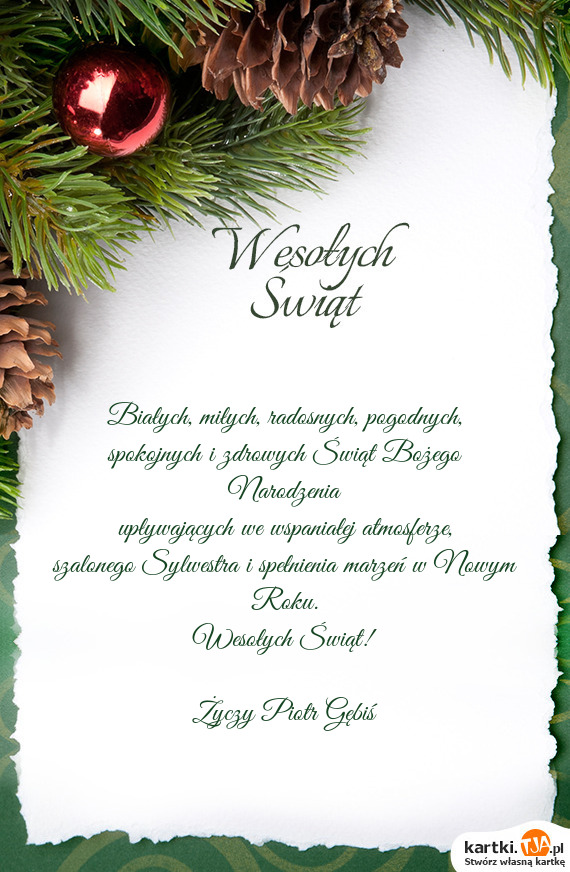 Wesołych
Świąt
Białych, miłych, radosnych, pogodnych,
spokojnych i zdrowych Świąt Bożego
Narodzenia
upływających we wspaniałej atmosferze,
szalonego Sylwestra i spełnienia marzeń w Nowym
Roku.
Wesołych Świąt!
Życzy Piotr Gębiś
kartki.TJA.pl
Stwórz własną kartkę